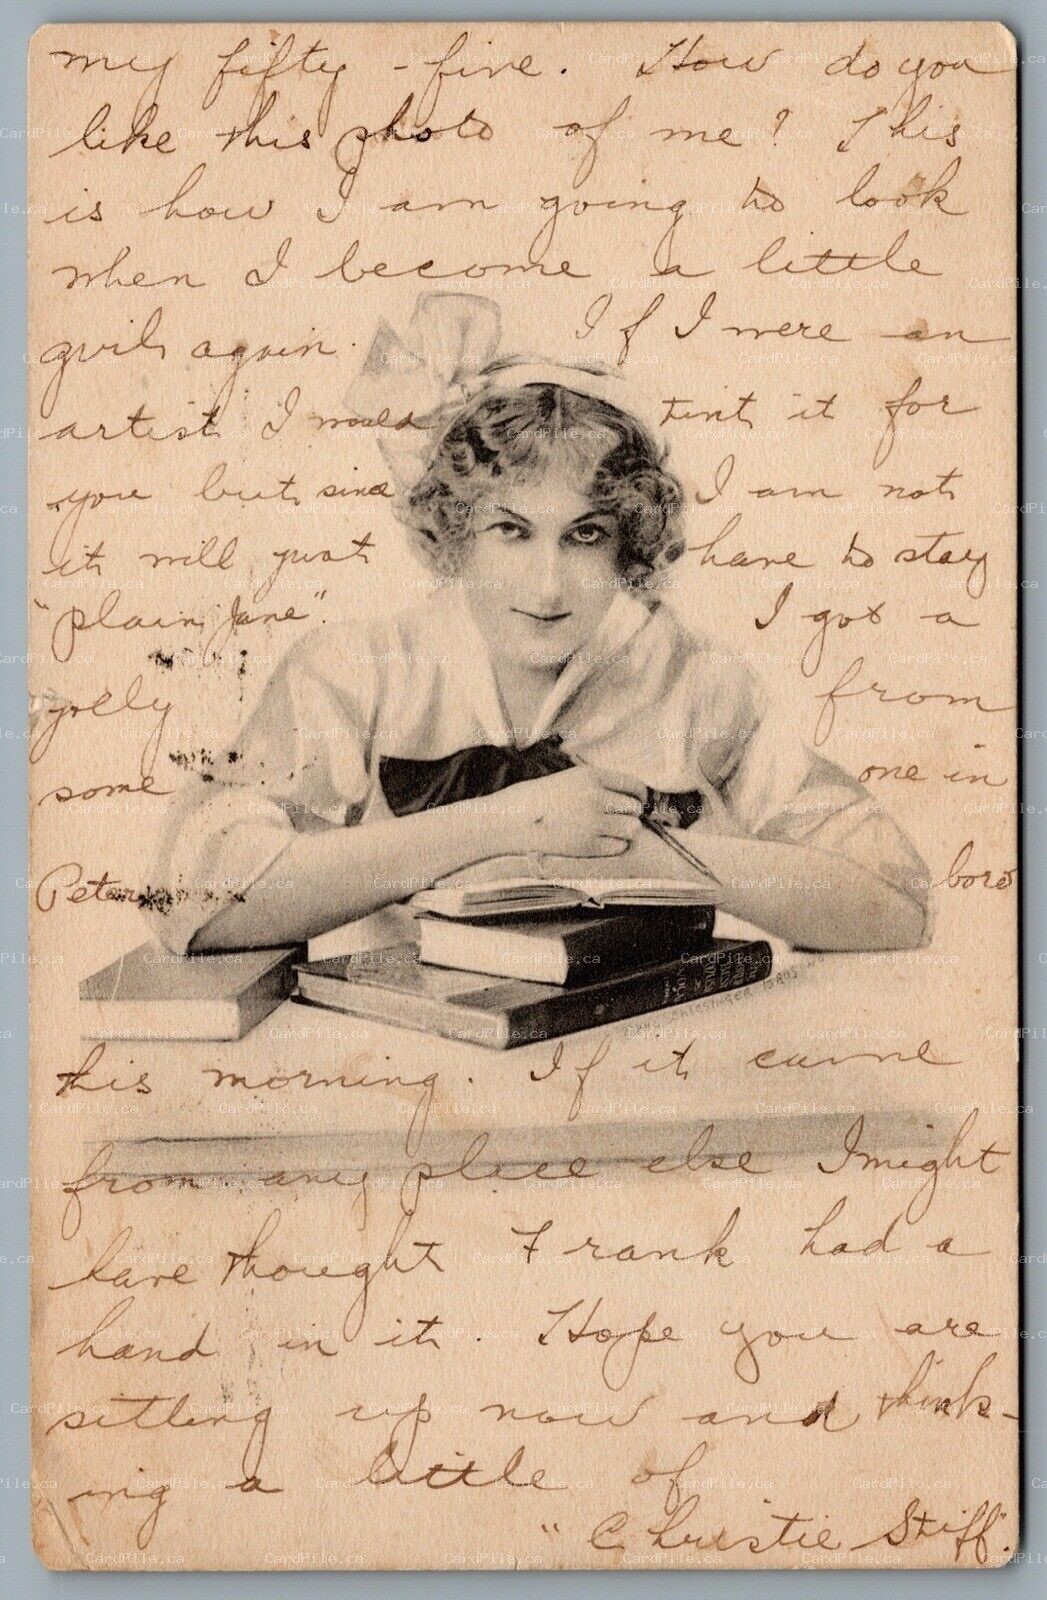 my fifty-five. How do you
like this photo of me? This
is how I am going to look
when I become a little
girl again. If I were an
artist I would tint it for
you but since I am not
it will just have to stay
"plain Jane". I got a
jolly from
some one in
Peterboro
this morning. If it came
from any place else I might
have thought Frank had a
hand in it. Hope you are
sitting up now and think-
ing a little of
"Christie Stiff".